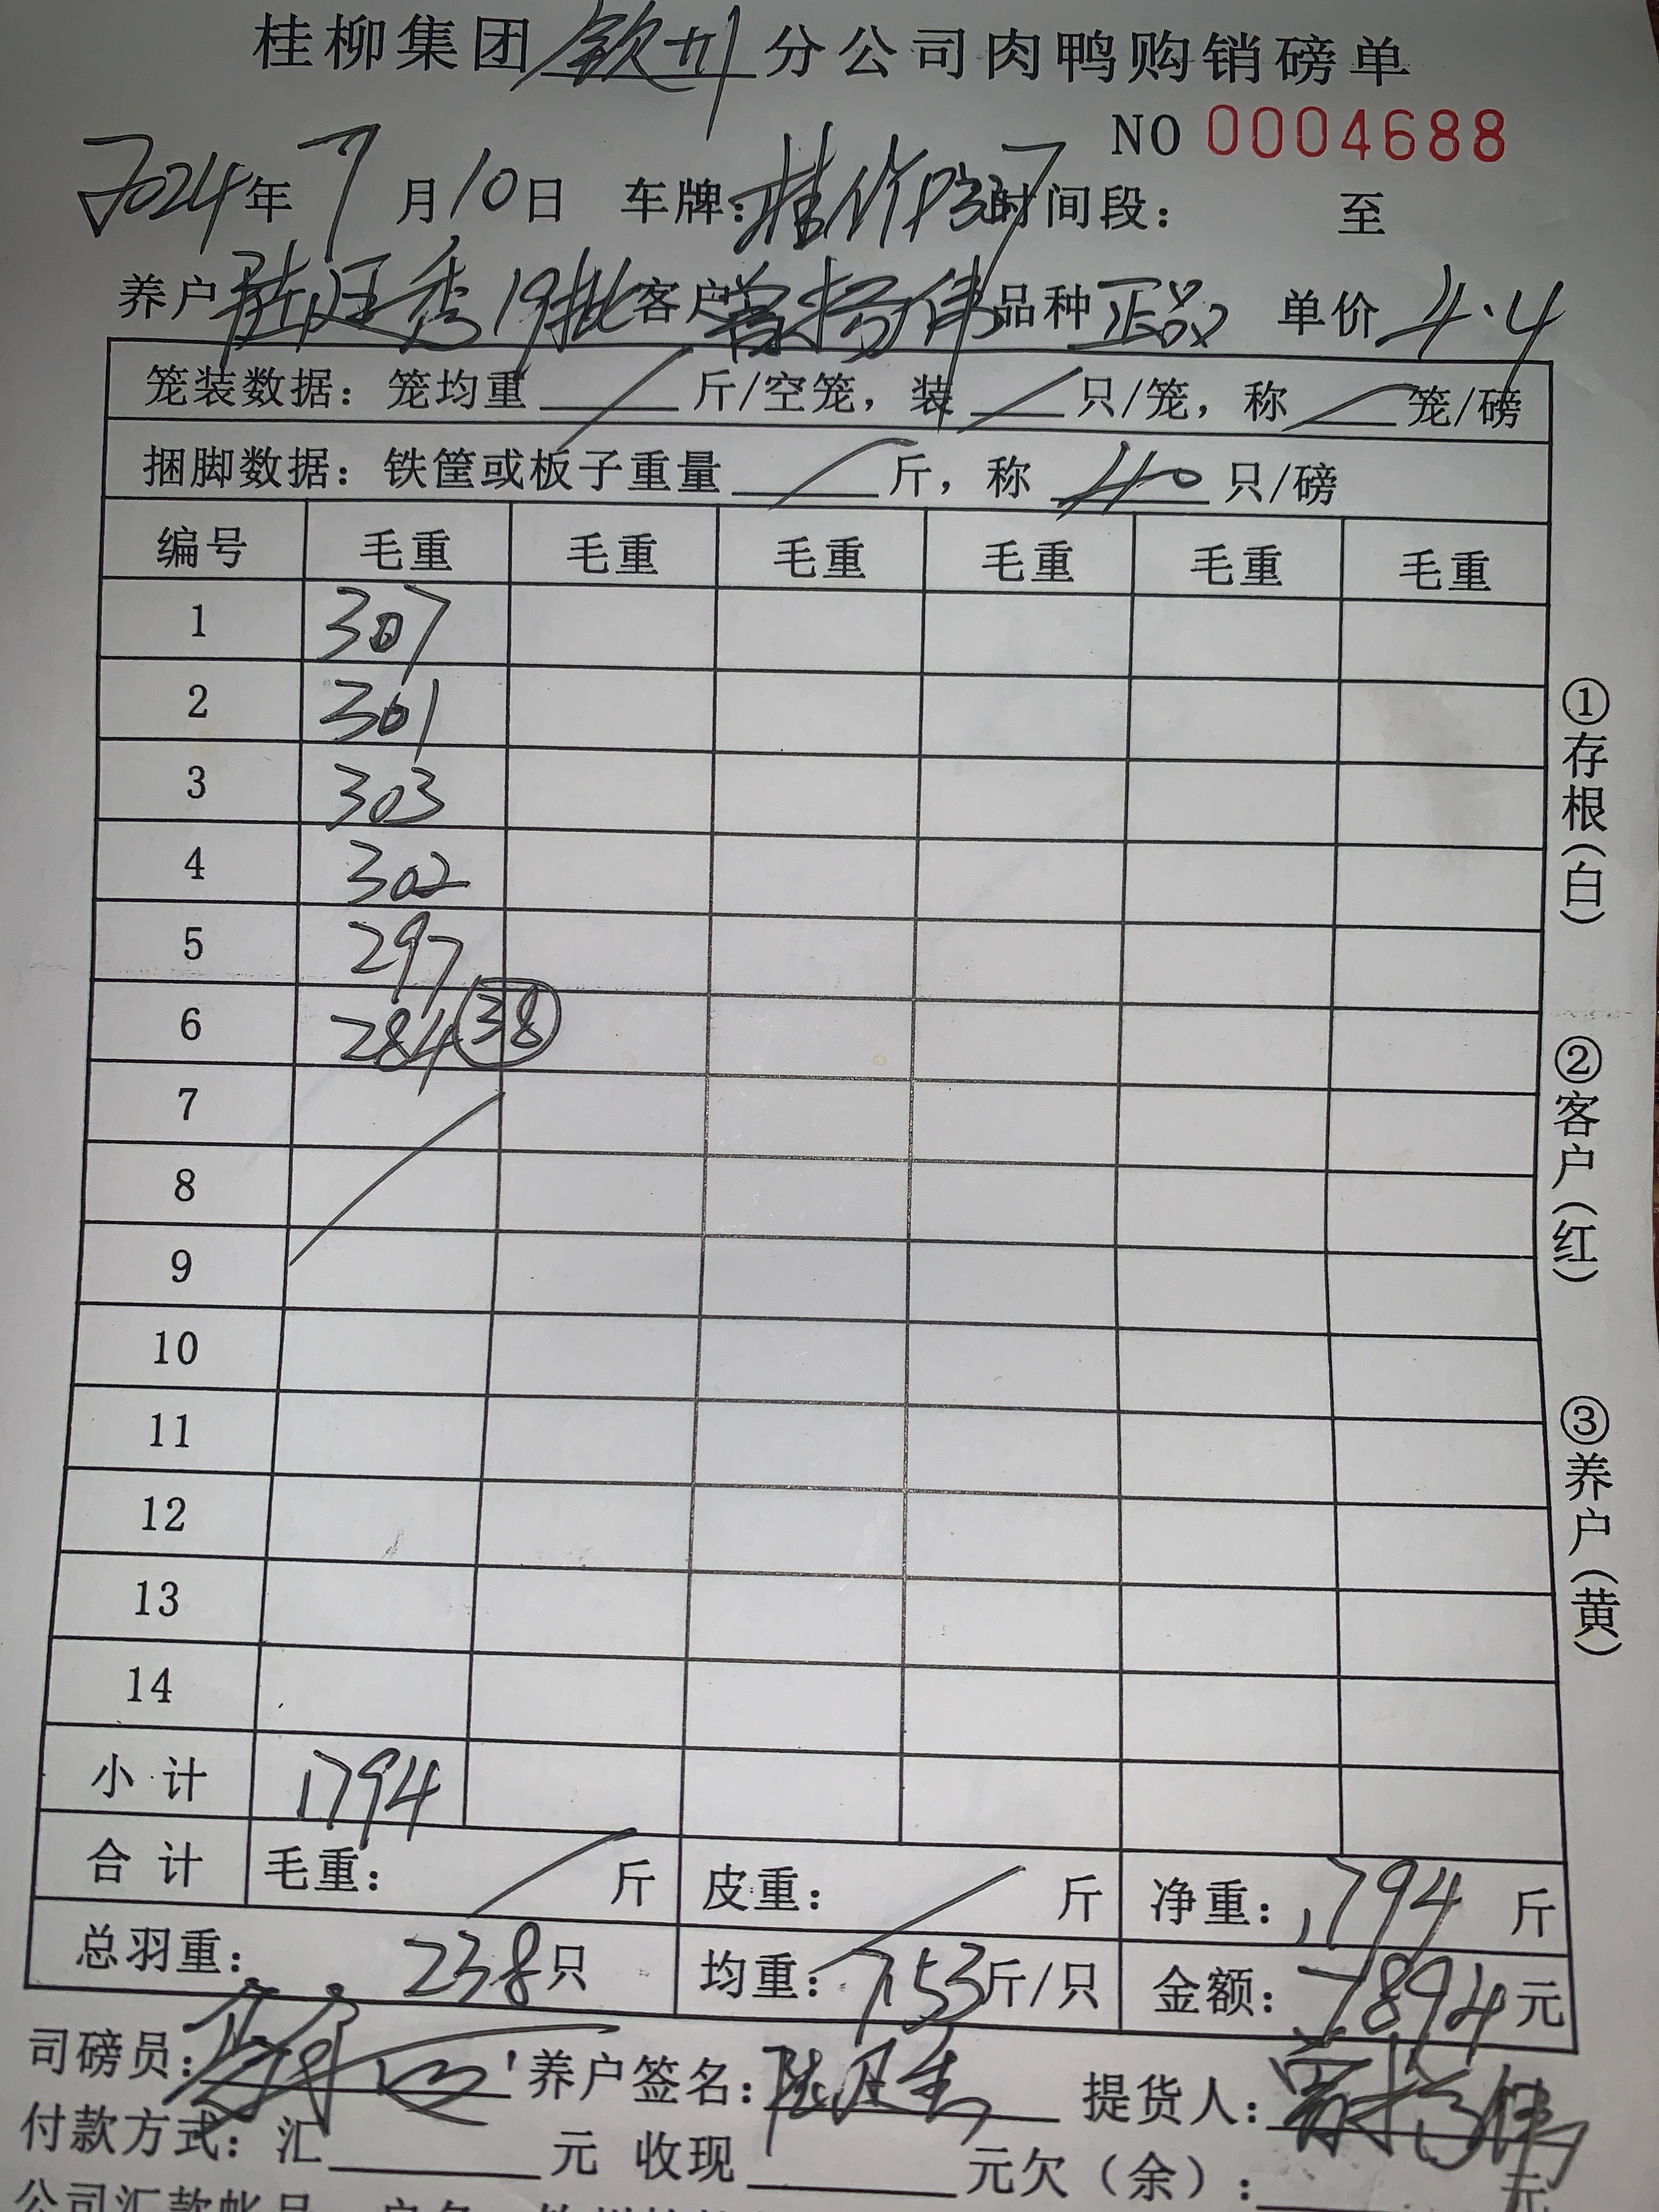 桂柳集团 钦州 分公司肉鸭购销磅单
NO 0004688
2024年 7 月10日 车牌: 时间段: 至
养户 陆廷秀 19批 客户 品种 正品 单价 4.4
笼装数据: 笼均重 / 斤/空笼, 装 / 只/笼, 称 / 笼/磅
捆脚数据: 铁筐或板子重量 / 斤, 称 40 只/磅
编号 毛重 毛重 毛重 毛重 毛重 毛重
1 307
2 301
3 303
4 302
5 297
6 284 38
7
8
9
10
11
12
13
14
小计 1794
合计 毛重: / 斤 皮重: / 斤 净重: 1794 斤
总羽重: 238只 均重: 7.53斤/只 金额: 7894元
司磅员: 养户签名: 提货人:
付款方式: 汇 元 收现 元欠(余): 元
①存根(白)
②客户(红)
③养户(黄)